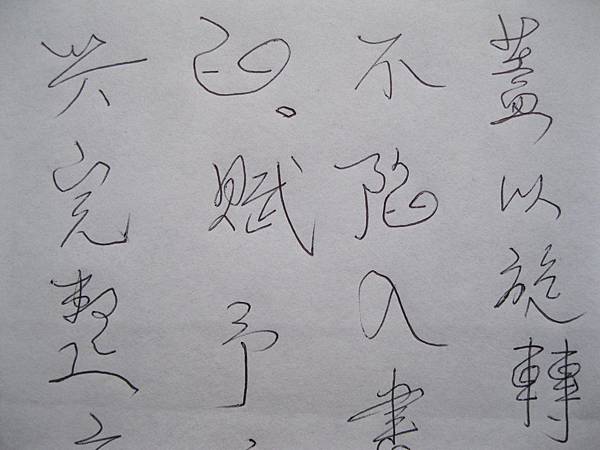 蓋以旋轉
不陷入
臼。賦予
兴完整